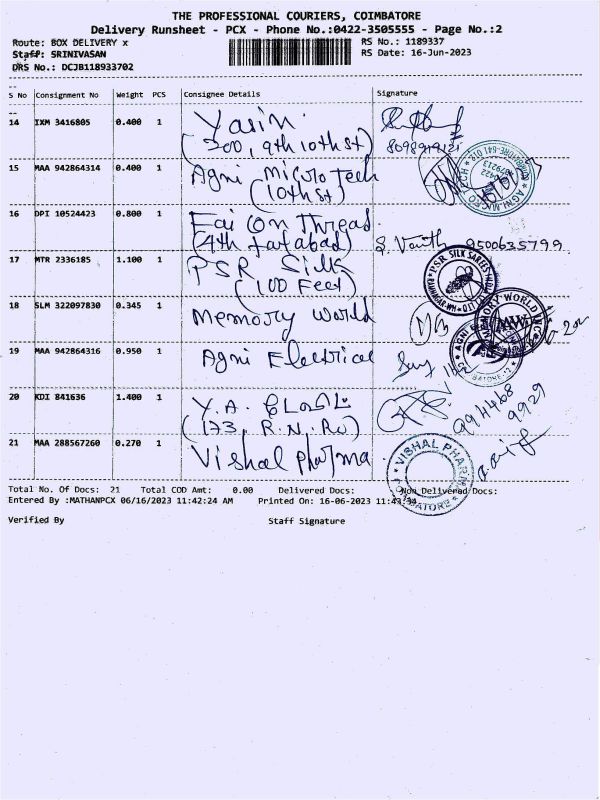 THE PROFESSIONAL COURIERS, COIMBATORE
Delivery Runsheet - PCX - Phone No.:0422-3505555 - Page No.:2
Route: BOX DELIVERY x RS No.: 1189337
Staff: SRINIVASAN RS Date: 16-Jun-2023
DRS No.: DCJB118933702
S No Consignment No Weight PCS Consignee Details Signature
14 IXM 3416805 0.400 1 Yasin
(300, 9th 10th st)
15 MAA 942864314 0.400 1 Agni Micro Tech
(10th st)
16 DPI 10524423 0.800 1 Fai On Thread
(4th
9500635799
17 MTR 2336185 1.100 1 PSR Silk
(100 Feet)
PSR SILK SAREES
18 SLM 322097830 0.345 1 Memory World
MEMORY WORLD INC
MW
19 MAA 942864316 0.950 1 Agni Electrical
20 KDI 841636 1.400 1 Y.A.
(173, R.N. Rd)
994468
9929
21 MAA 288567260 0.270 1 Vishal Pharma
VISHAL PHARMA
COIMBATORE
Total No. Of Docs: 21 Total COD Amt: 0.00 Delivered Docs: Non Delivered Docs:
Entered By :MATHANPCX 06/16/2023 11:42:24 AM Printed On: 16-06-2023 11:43:34
Verified By Staff Signature